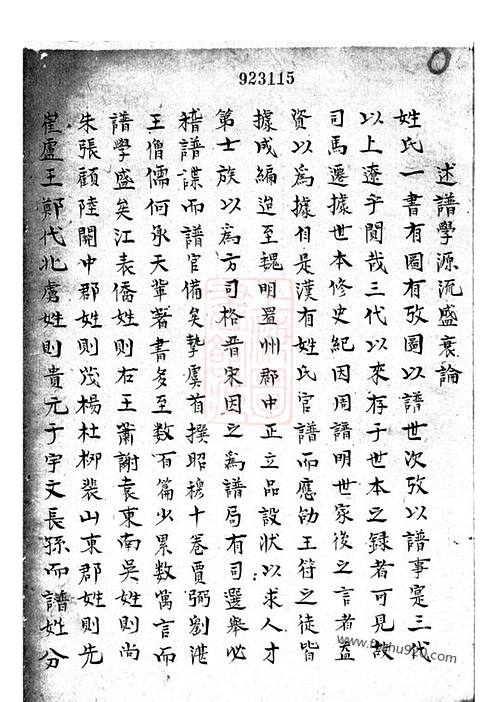 923115
述譜學源流盛衰論
姓氏一書有圖有攷圖以譜世次攷以譜事寔三代
以上遼乎闊哉三代以來存于世本之錄者可見故
司馬遷據世本修史紀因周譜明世家後之言者益
資以為據自是漢有姓氏官譜而應劭王符之徒皆
據成編迨至魏明置州郡中正立品設狀以求人才
第士族以為方司格晉宋因之為譜局有司選舉必
稽譜諜而譜官備矣摯虞首撰昭穆十卷賈弼劉湛
王僧儒何承天輩著書多至數百篇少累數萬言而
譜學盛矣江表僑姓則右王蕭謝袁東南吳姓則尚
朱張顧陸關中郡姓則茂楊杜柳裴山東郡姓則先
崔盧王鄭代北虜姓則貴元于宇文長孫而譜姓分